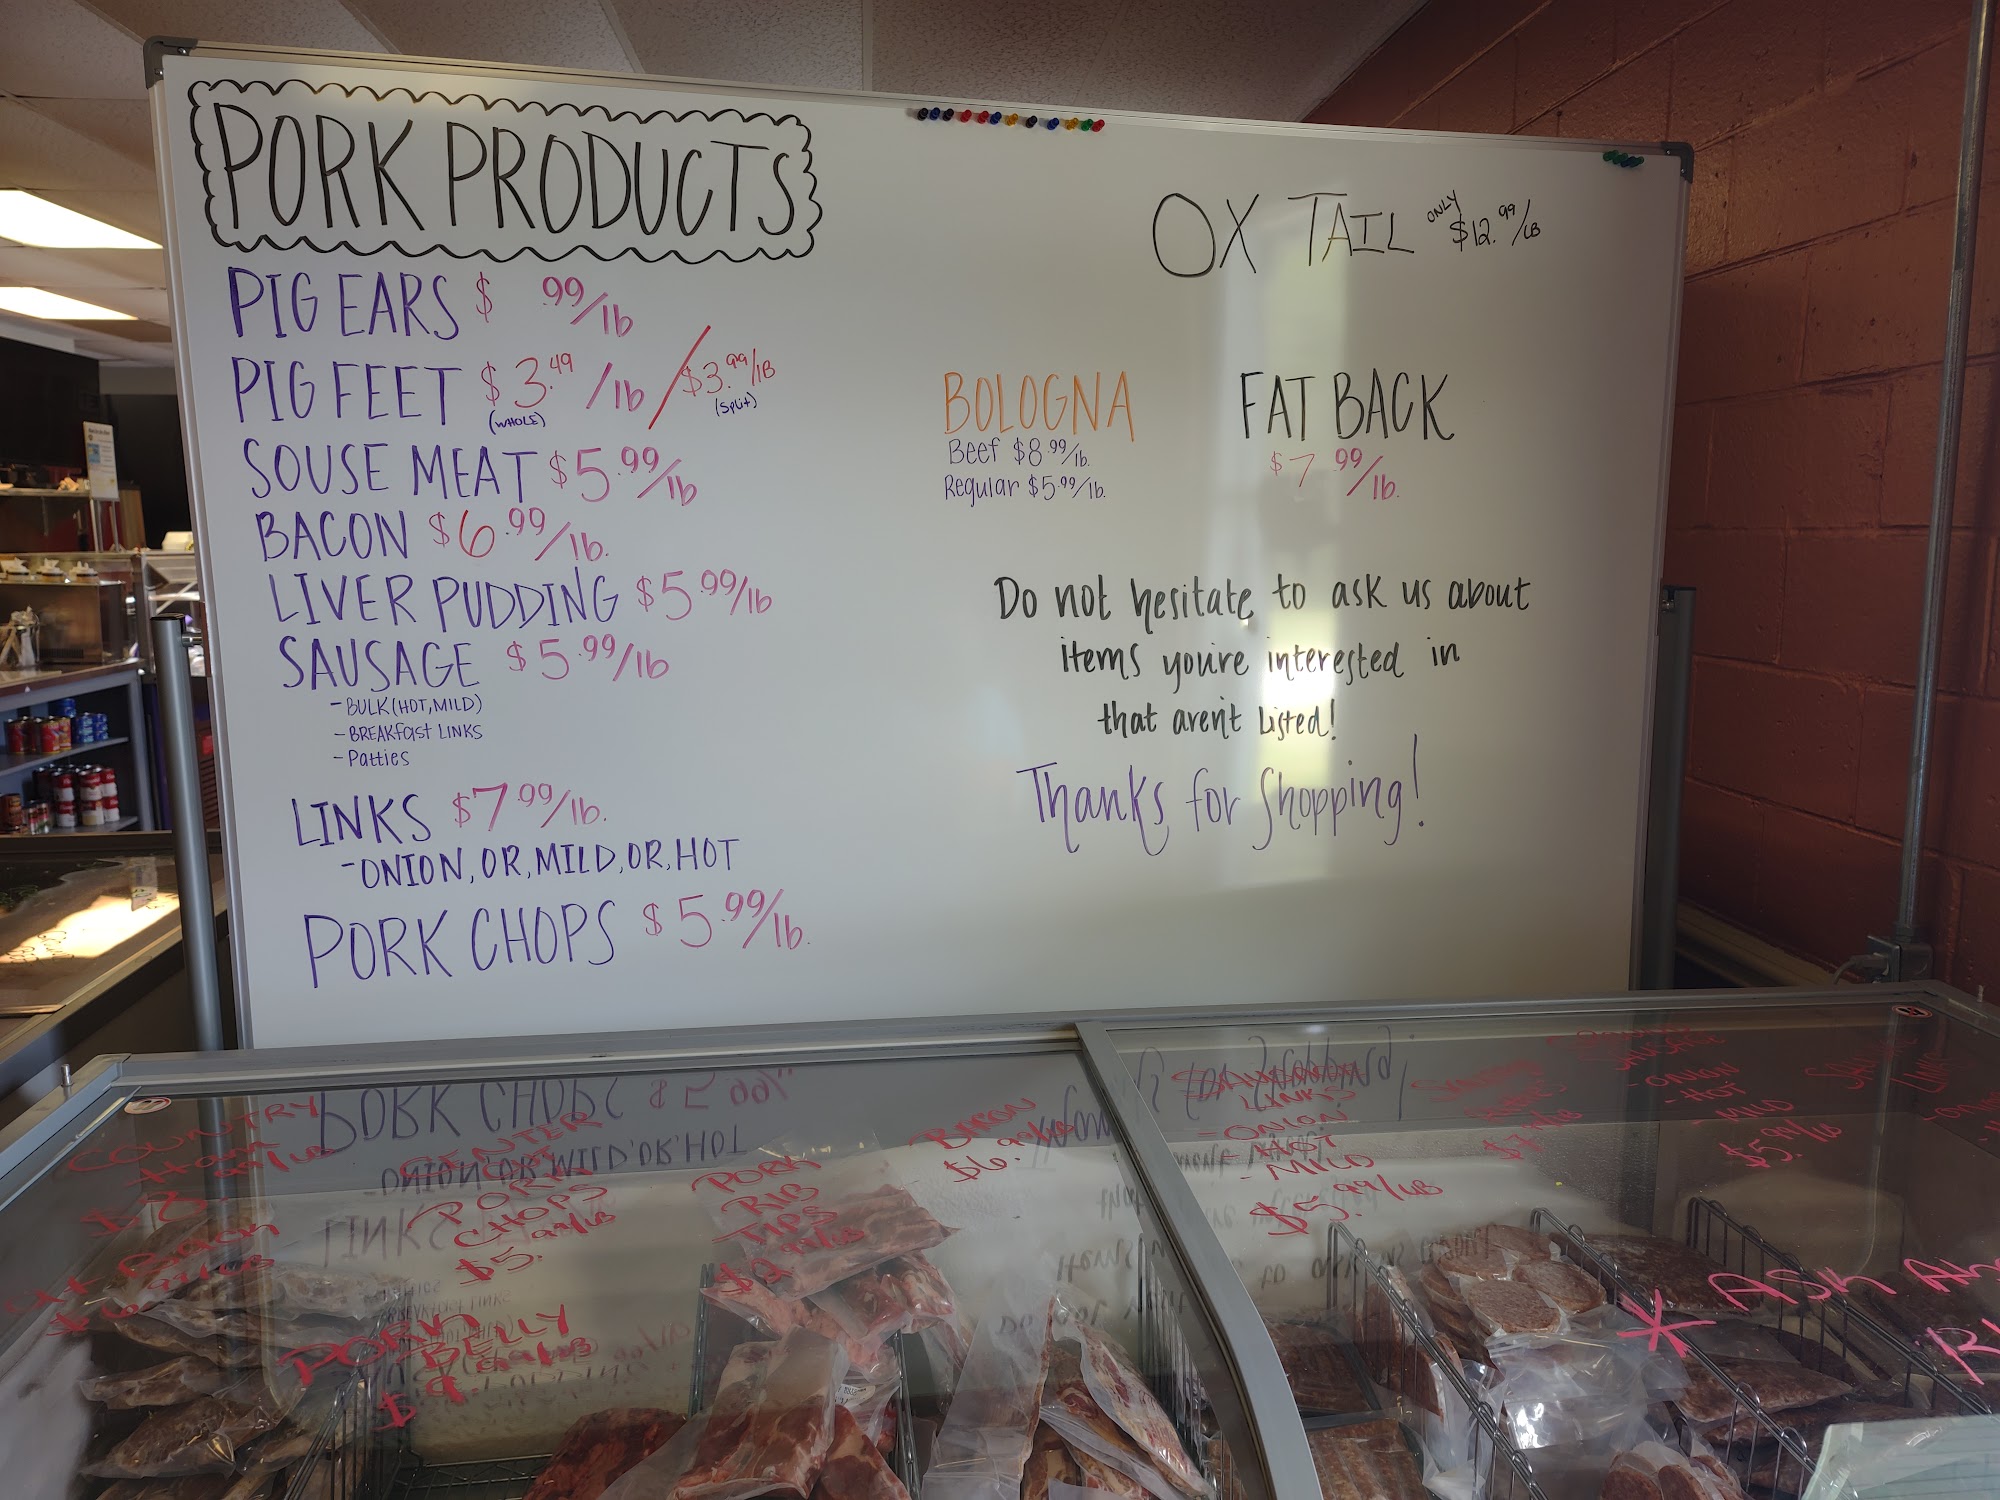 PORK PRODUCTS
PIG EARS $ .99/lb
PIG FEET $3.49/lb / $3.99/lB
(WHOLE) (Split)
SOUSE MEAT $5.99/lb
BACON $6.99/lb.
LIVER PUDDING $5.99/lb
SAUSAGE $5.99/lb
- BULK (HOT, MILD)
- BREAKfast LINKS
- Patties
LINKS $7.99/lb.
- ONION, OR, MILD, OR, HOT
PORK CHOPS $5.99/lb.
OX TAIL ONLY $12.99/LB
BOLOGNA
Beef $8.99/lb.
Regular $5.99/lb.
FAT BACK
$7.99/lb.
Do not hesitate to ask us about
items you're interested in
that aren't Listed!
Thanks for Shopping!
COUNTRY
HAM
FAT BACK
CENTER
CUT
PORK
CHOPS
$5.99/LB
PORK
BELLY
$9.99/LB
PORK
RIB
TIPS
$2.99/LB
BACON
$6.99/LB
LINKS
- ONION
- HOT
- MILD
$5.99/LB
SAUSAGE
- ONION
- HOT
- MILD
$5.99/LB
* ASK